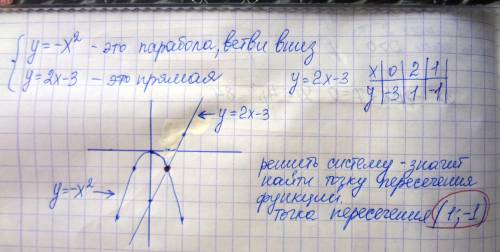 { y=-x² - это парабола, ветви вниз
y=2x-3 - это прямая
y=2x-3
x | 0 | 2 | 1
y | -3 | 1 | -1
← y=2x-3
y=-x² →
решить систему - значит
найти точку пересечения
функции.
Точка пересечения (1; -1)